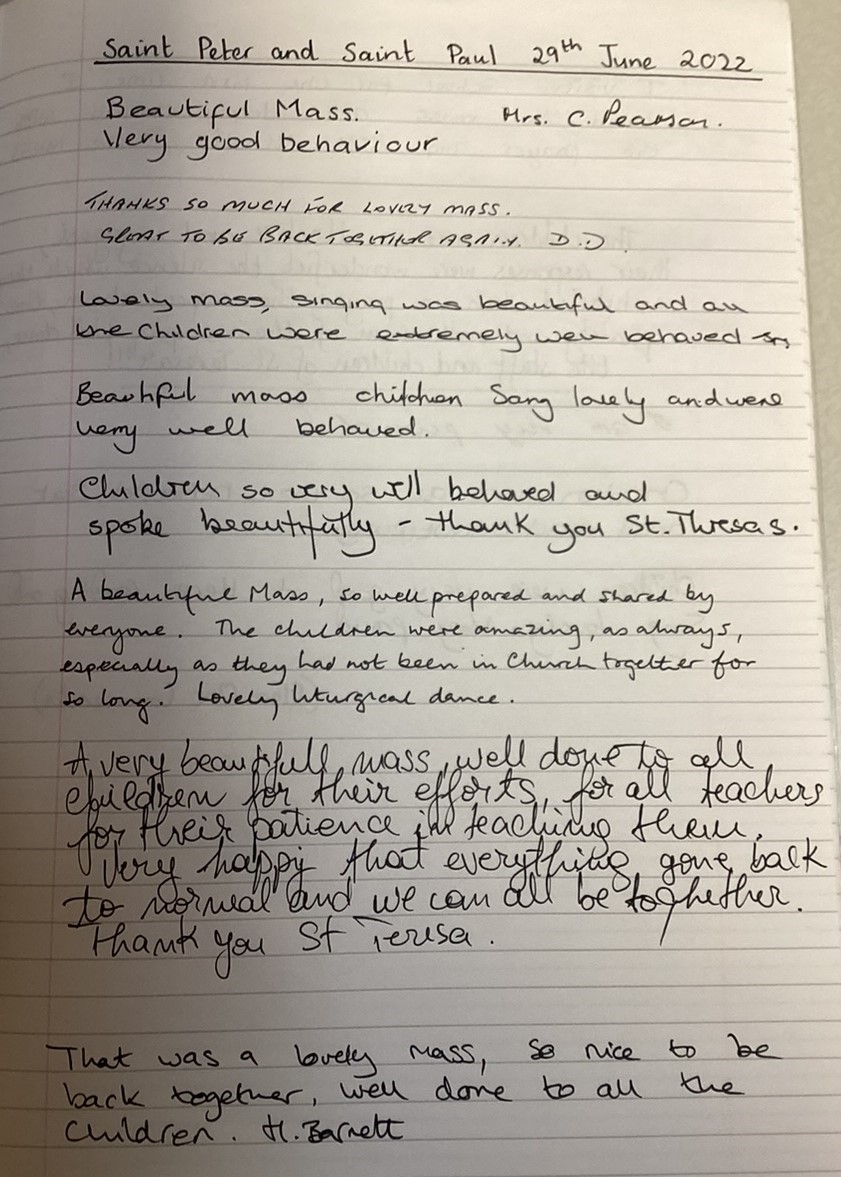 Saint Peter and Saint Paul 29th June 2022
Beautiful Mass. Mrs. C. Pearson.
Very good behaviour
THANKS SO MUCH FOR LOVELY MASS.
GREAT TO BE BACK TOGETHER AGAIN. D.D.
Lovely mass, singing was beautiful and all
the Children were extremely well behaved
Beautiful mass children Sang lovely and were
very well behaved.
Children so very well behaved and
spoke beautifully - thank you St. Theresas.
A beautiful Mass, so well prepared and shared by
everyone. The children were amazing, as always,
especially as they had not been in Church together for
so long. Lovely liturgical dance.
A very beautifull mass, well done to all
children for their efforts, for all teachers
for their patience in teaching them.
Very happy that everything gone back
to normal and we can all be toghether.
Thank you St Teresa.
That was a lovely mass, so nice to be
back together, well done to all the
Children. H. Barnett